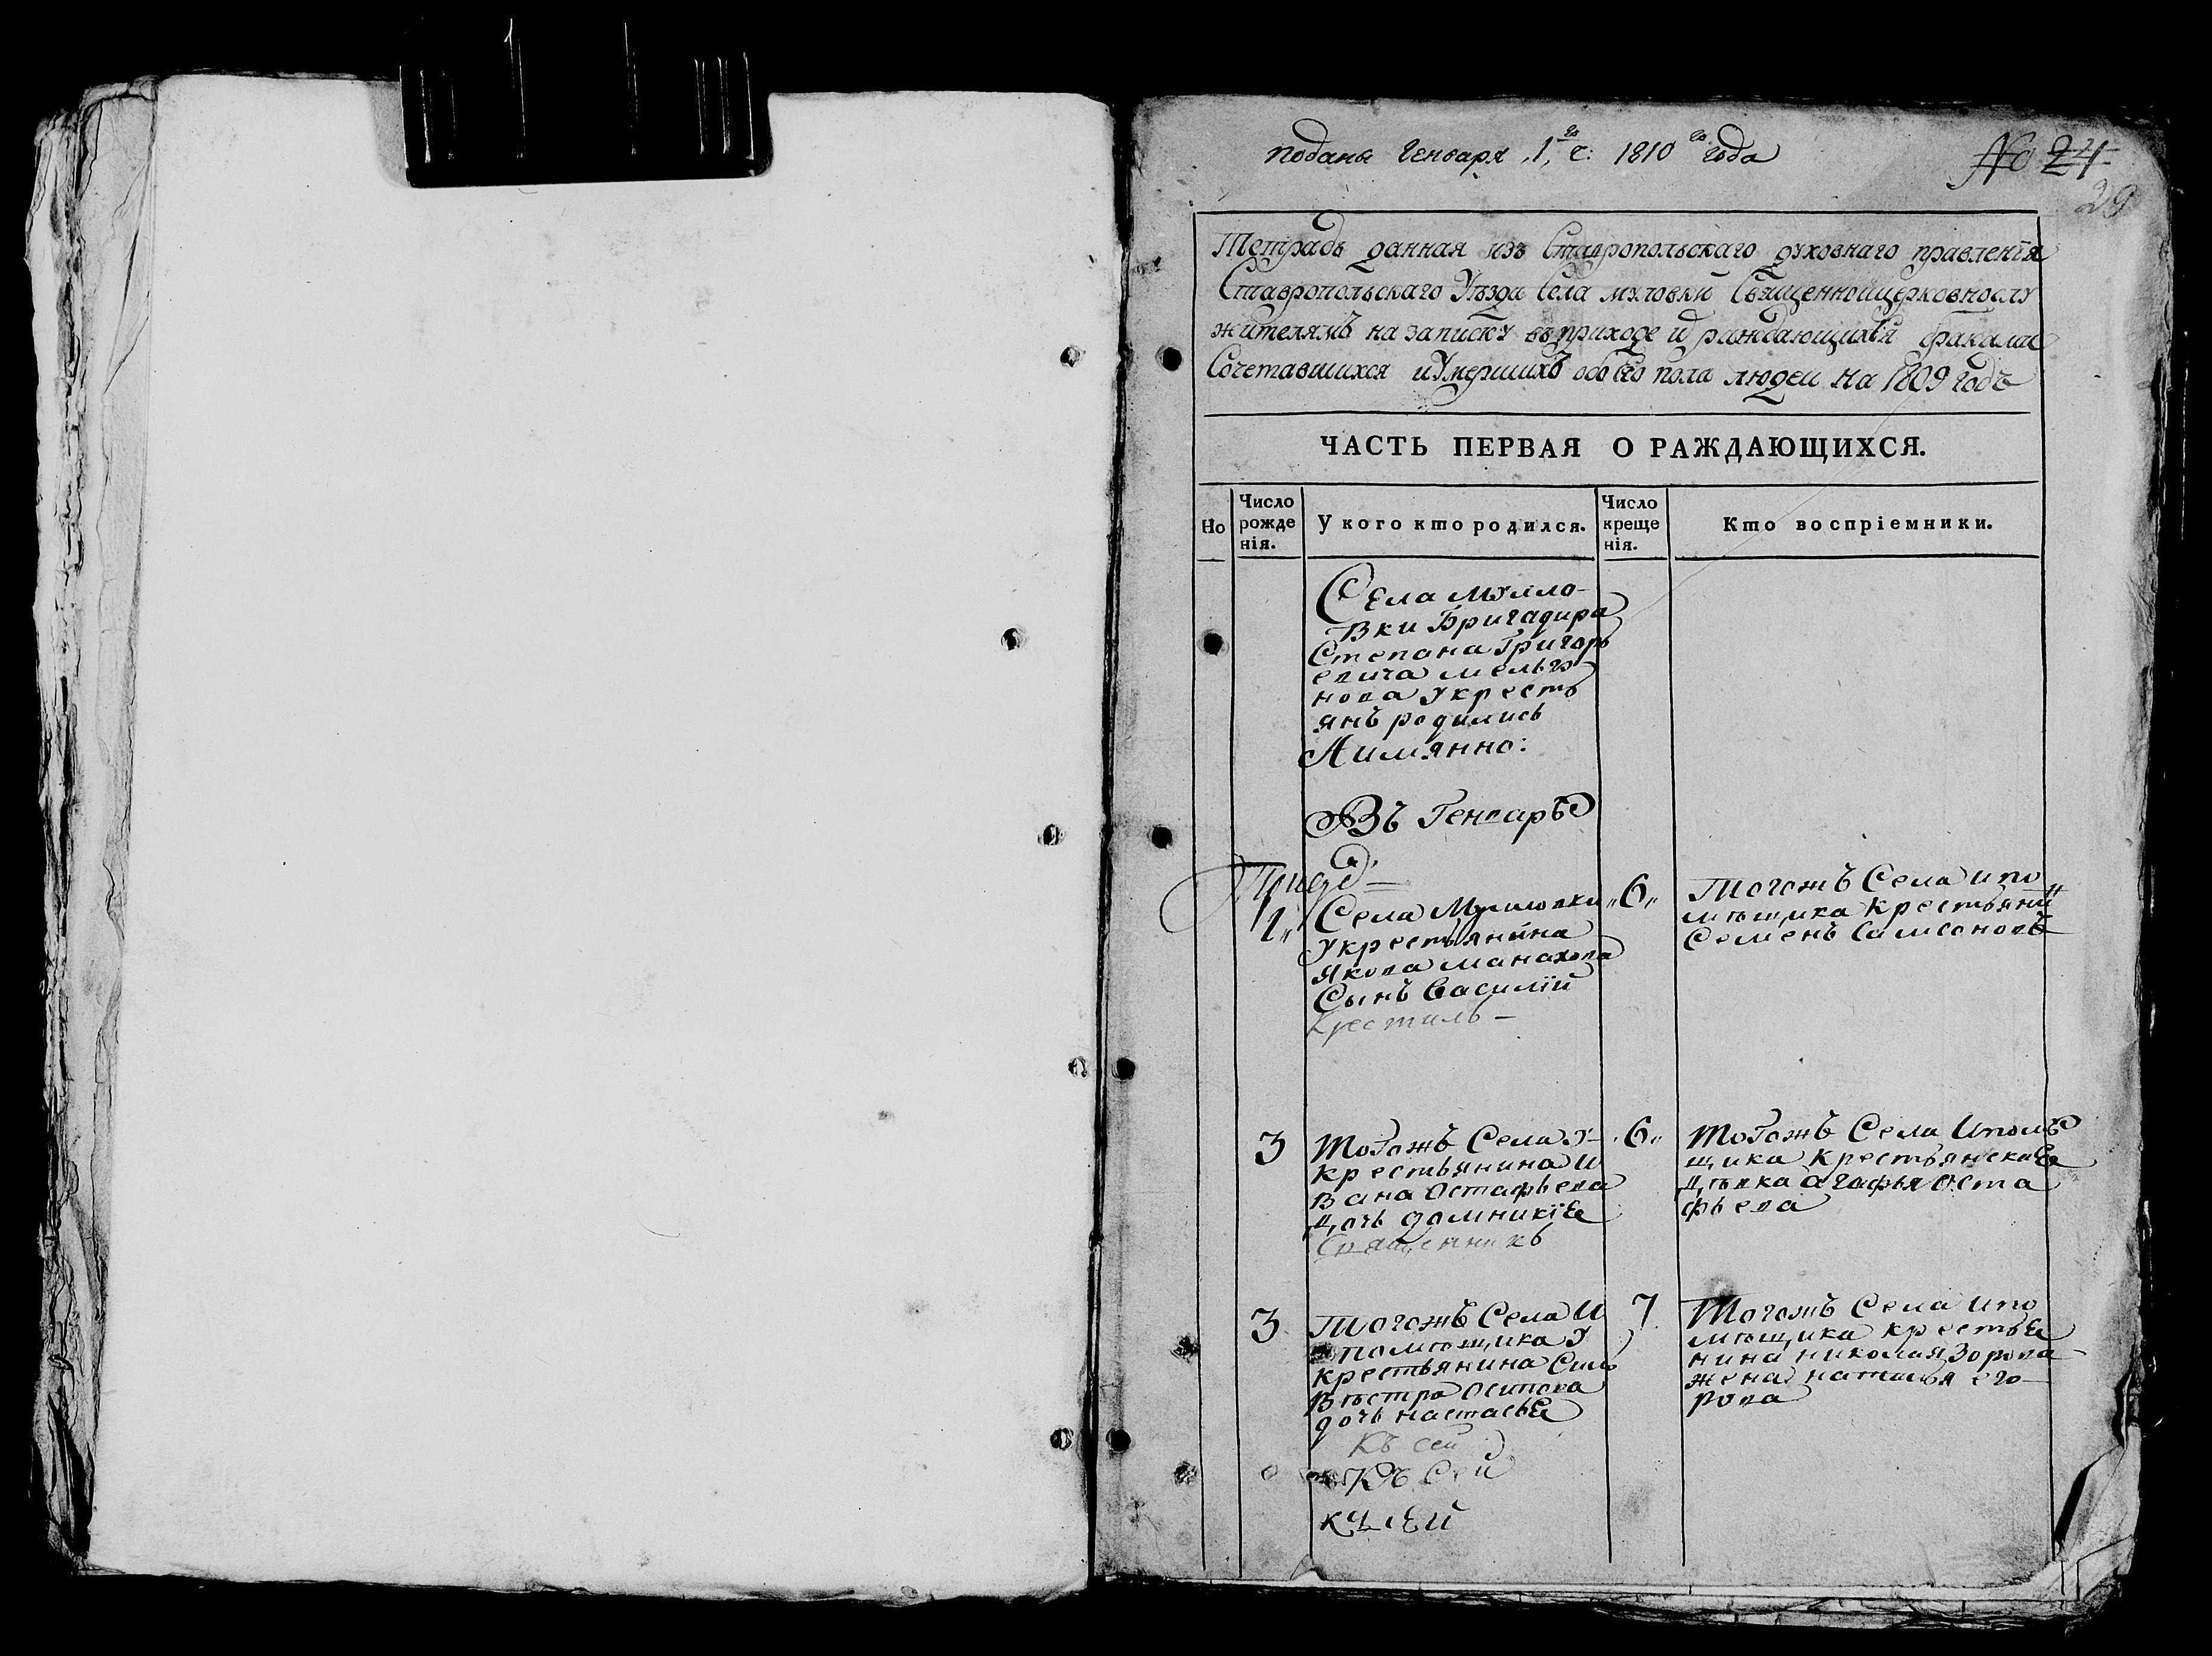 поданы Генваря 1го ч: 1810го года
№ 24
29
Тетрадь данная изъ Ставропольскаго духовнаго правленїя
Ставропольскаго Уѣзда Села мулловки Священноицерковнослу
жителямъ на записку въ приходе и раждающихся бракомъ
Сочетавшихся иУмершихъ обоего пола людей на 1809 годъ
ЧАСТЬ ПЕРВАЯ О РАЖДАЮЩИХСЯ.
Но
Число
рожде
нія.
У кого кто родился.
Число
креще
нія.
Кто воспріемники.
Села мулло-
вки Бригадира
Степана Григорь
евича мельгу-
нова Укресть
янъ родились
Аимянно:
Въ Генварѣ
1
Села Мулловки
Укрестьянина
Якова манахова
Сынъ Василїй
Крестилъ
6
Тогожъ Села ипо
мѣщика крестьянинъ
Семенъ Самсоновъ
3
Тогожъ Села у
крестьянина И
вана Остафьева
дочь домникїя
Священникъ
6
Тогожъ Села Ипомѣ
щика Крестьянская
дѣвка агафья Оста
фьева
3
Тогожъ Села И
помѣщика У
крестьянина Силь
вѣстра Осипова
дочь настасья
Къ сей
Къ Сей
7
Тогожъ Села ипо
мѣщика крестья
нина николая Зорова
жена наталья его
рова